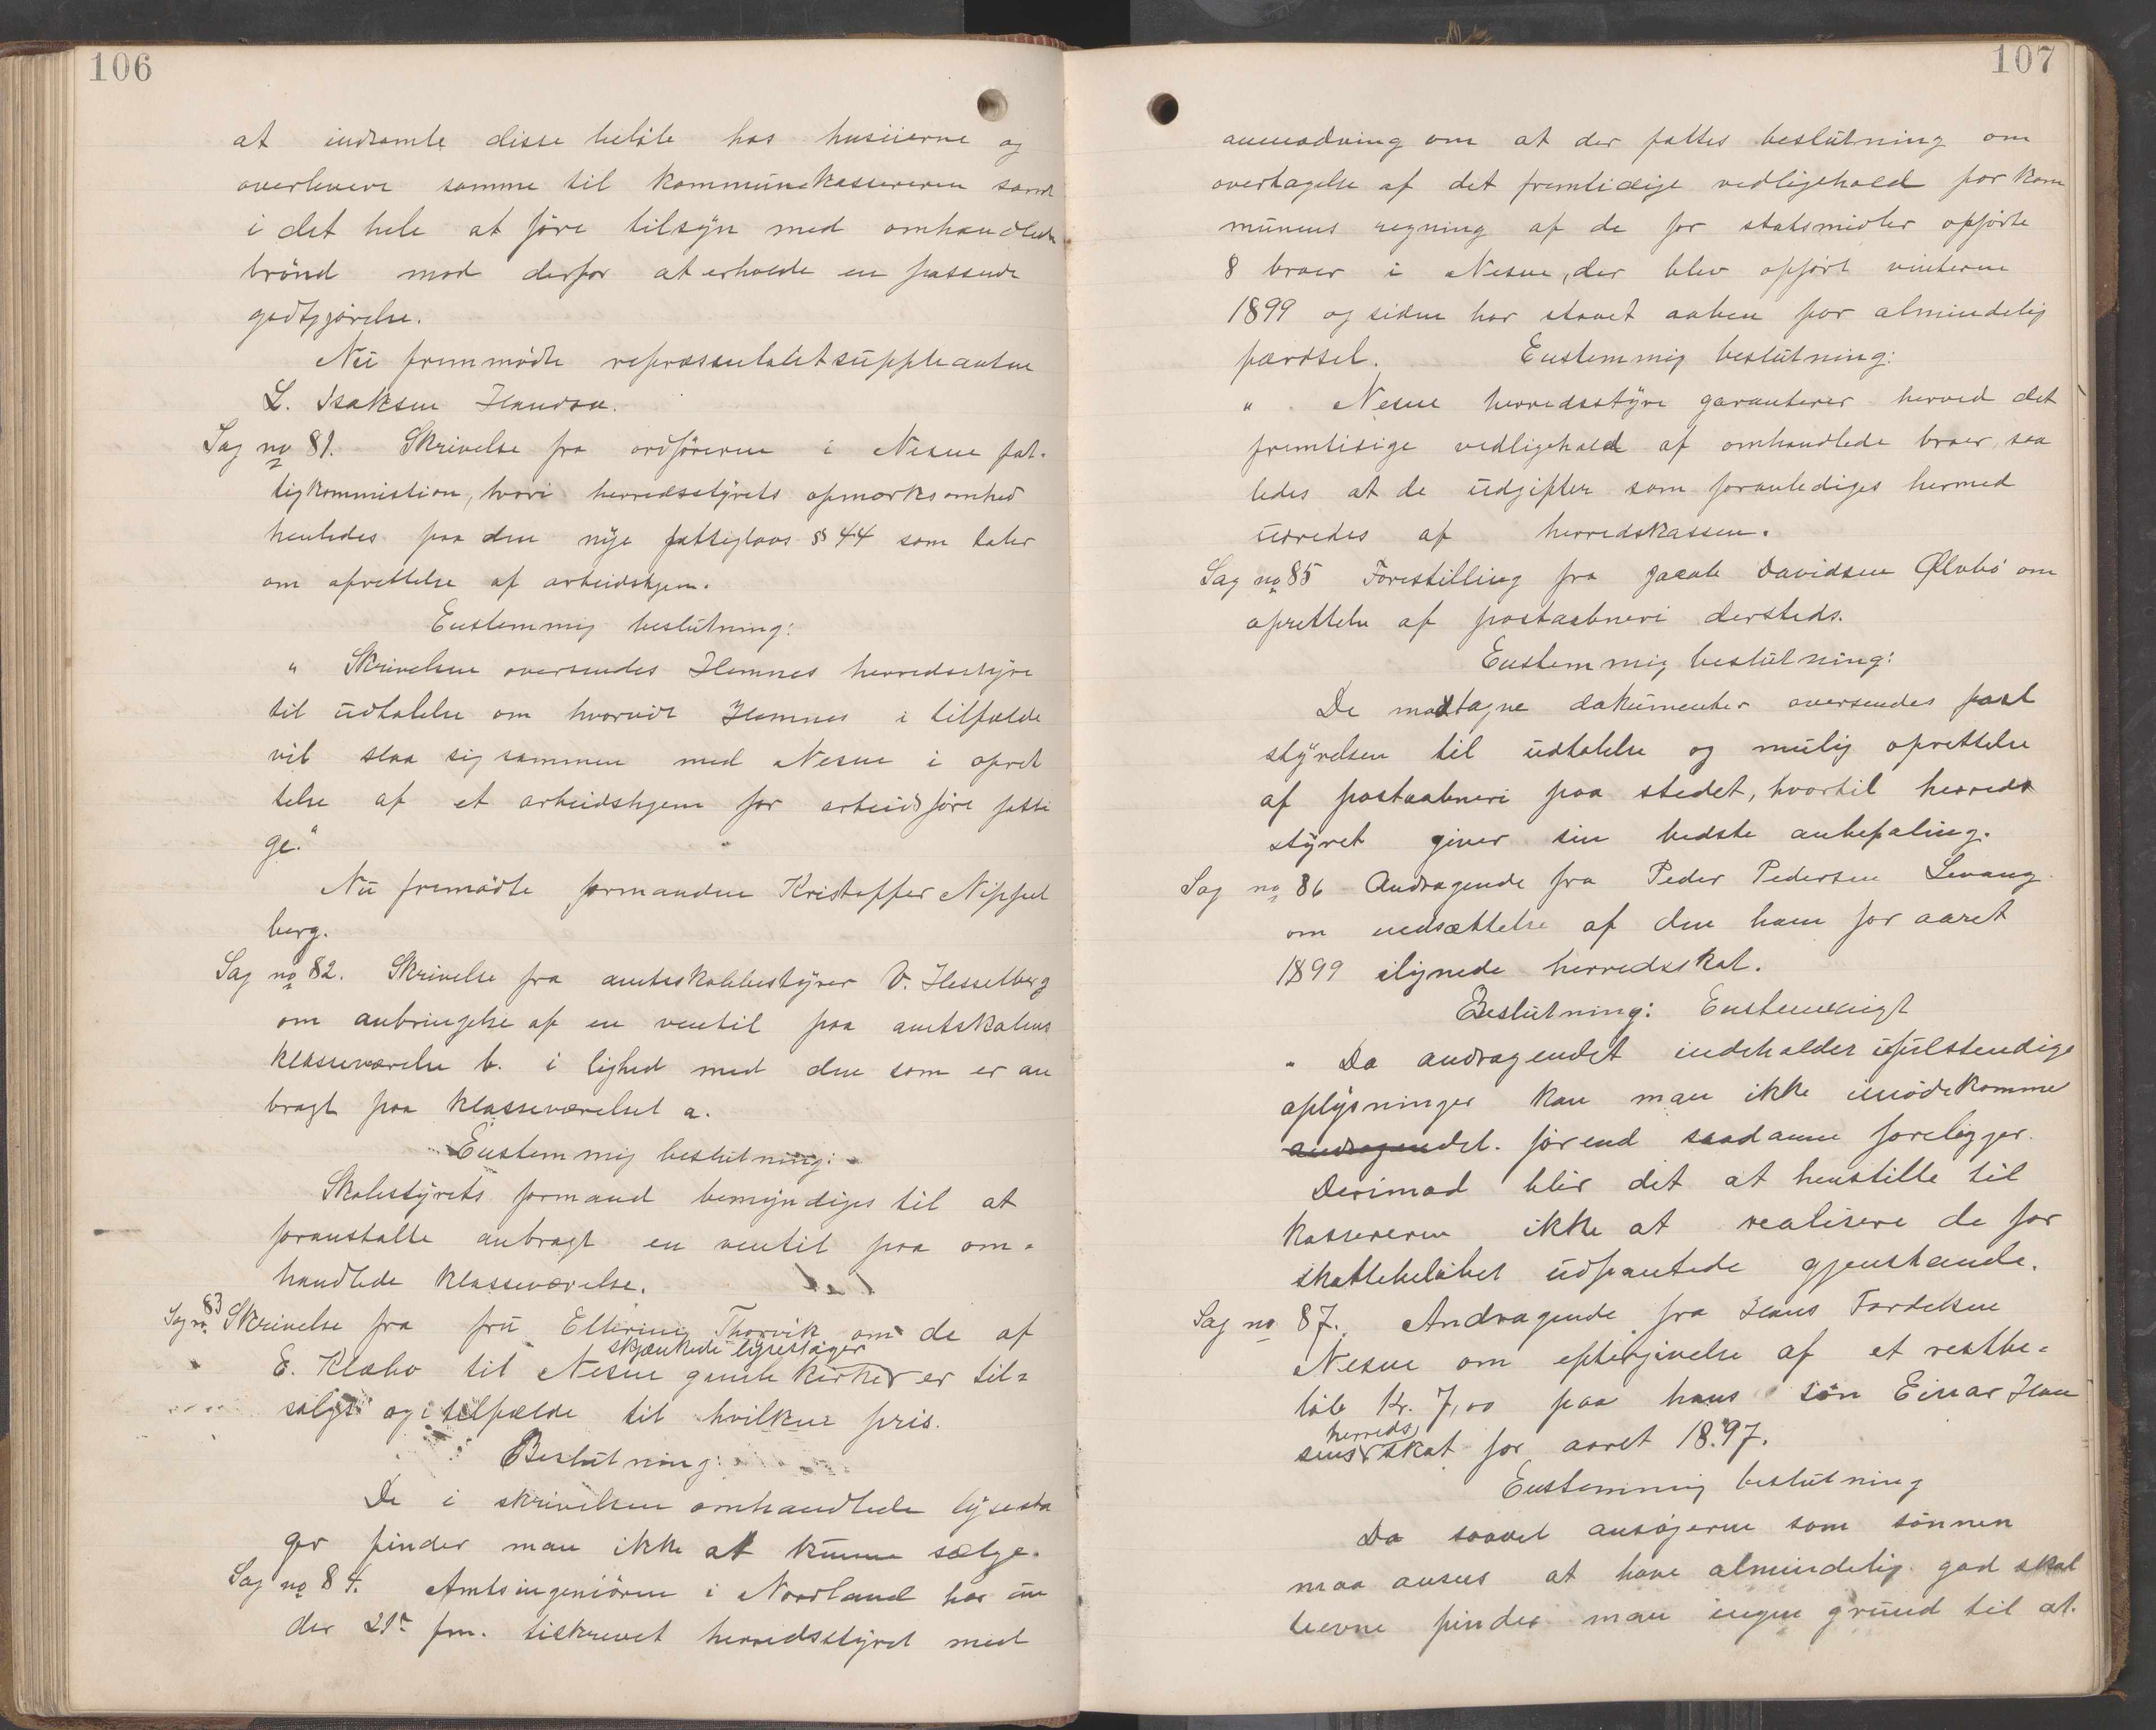 106
at indsamle disse beløb hos huseierne og
overlevere samme til kommunekassereren samt
i det hele at føre tilsyn med omhandlede
brønd mod derfor at erholde en passende
godtgjørelse.
Nu fremmødte repræsentatntsuppleanten
L. Isaksen Handnn.
Sag no 81. Skrivelse fra ordføreren i Nesne fat-
tigkommistion, hvori herredsstyrets opmerksomhed
henledes paa den nye fattiglovs § 44 som taler
om oprettelse af arbeidshjem.
Enstemmig beslutning:
" Skrivelsen oversendes Hemnes herredsstyre
til udtalelse om hvorvidt Hemnes i tilfælde
vil slaa sig sammen med Nesne i opret
telse af et arbeidshjem for arbeidsføre fatti
ge."
Nu fremødte formanden Kristoffer Nipfjel
berg.
Sag no 82. Skrivelse fra amtsskolebestyrer V. Hesselberg
om anbringelse af en ventil paa amtskolens
klasseværelse b. i lighed med den som er an
bragt paa klasseværelset a.
Enstemmig beslutning:
Skolestyrets formand bemyndiges til at
foranstalte anbragt en ventil paa om-
handlede klasseværelse.
Sag no. 83 Skrivelse fra fru Ellerine Thorvik om de af
skjænkede lysestager
E. Klæbo til Nesne gamle kirke er til-
salgs og i tilfælde til hvilken pris.
Beslutning:
De i skrivelsen omhandlede lysesta
ger finder man ikke at kunne sælge.
Sag no 84. Amtsingeniøren i Nordland har un
der 21de fm. tilskrevet herredsstyret med
107
anmodning om at der fattes beslutning om
overtagelse af det fremtidige vedligehold for kom
munens regning af de for statsmidler opførte
8 broer i Nesne, der blev opført vinteren
1899 og siden har staaet aaben for almindelig
færdsel. Enstemmig beslutning:
" Nesne herredsstyre garanterer herved det
fremtidige vedligehold af omhandlede broer, saa
ledes at de udgifter som foranlediges hermed
udredes af herredskassen.
Sag no 85 Forestilling fra Jacob Davidsen Ølvbø om
oprettelse af postaabneri dersteds.
Enstemmig beslutning:
De modtagne dokumenter oversendes post
styrelsen til udtalelse og mulig oprettelse
af postaabneri paa stedet, hvortil herreds
styret giver sin bedste anbefaling.
Sag no 86 Andragende fra Peder Pedersen Levang
om nedsættelse af den ham for aaret
1899 ilignede herredsskat.
Beslutning: Enstemmigt
" Da andragendet indeholder ufulstendige
oplysninger kan man ikke imødekomme
andragendet. førend saadanne foreligger.
Derimod blir det at henstille til
kassereren ikke at realisere de for
skattebeløbet udpantede gjenstande.
Sag no 87. Andragende fra Hans Tordeksen
Nesne om eftergivelse af et restbe-
løb kr. 7,00 paa hans søn Einar Han
herreds
sens skat for aaret 1897.
Enstemmig beslutning
Da saavel ansøgeren som sønnen
maa ansees at have almindelig god skat
teevne finder man ingen grund til at.